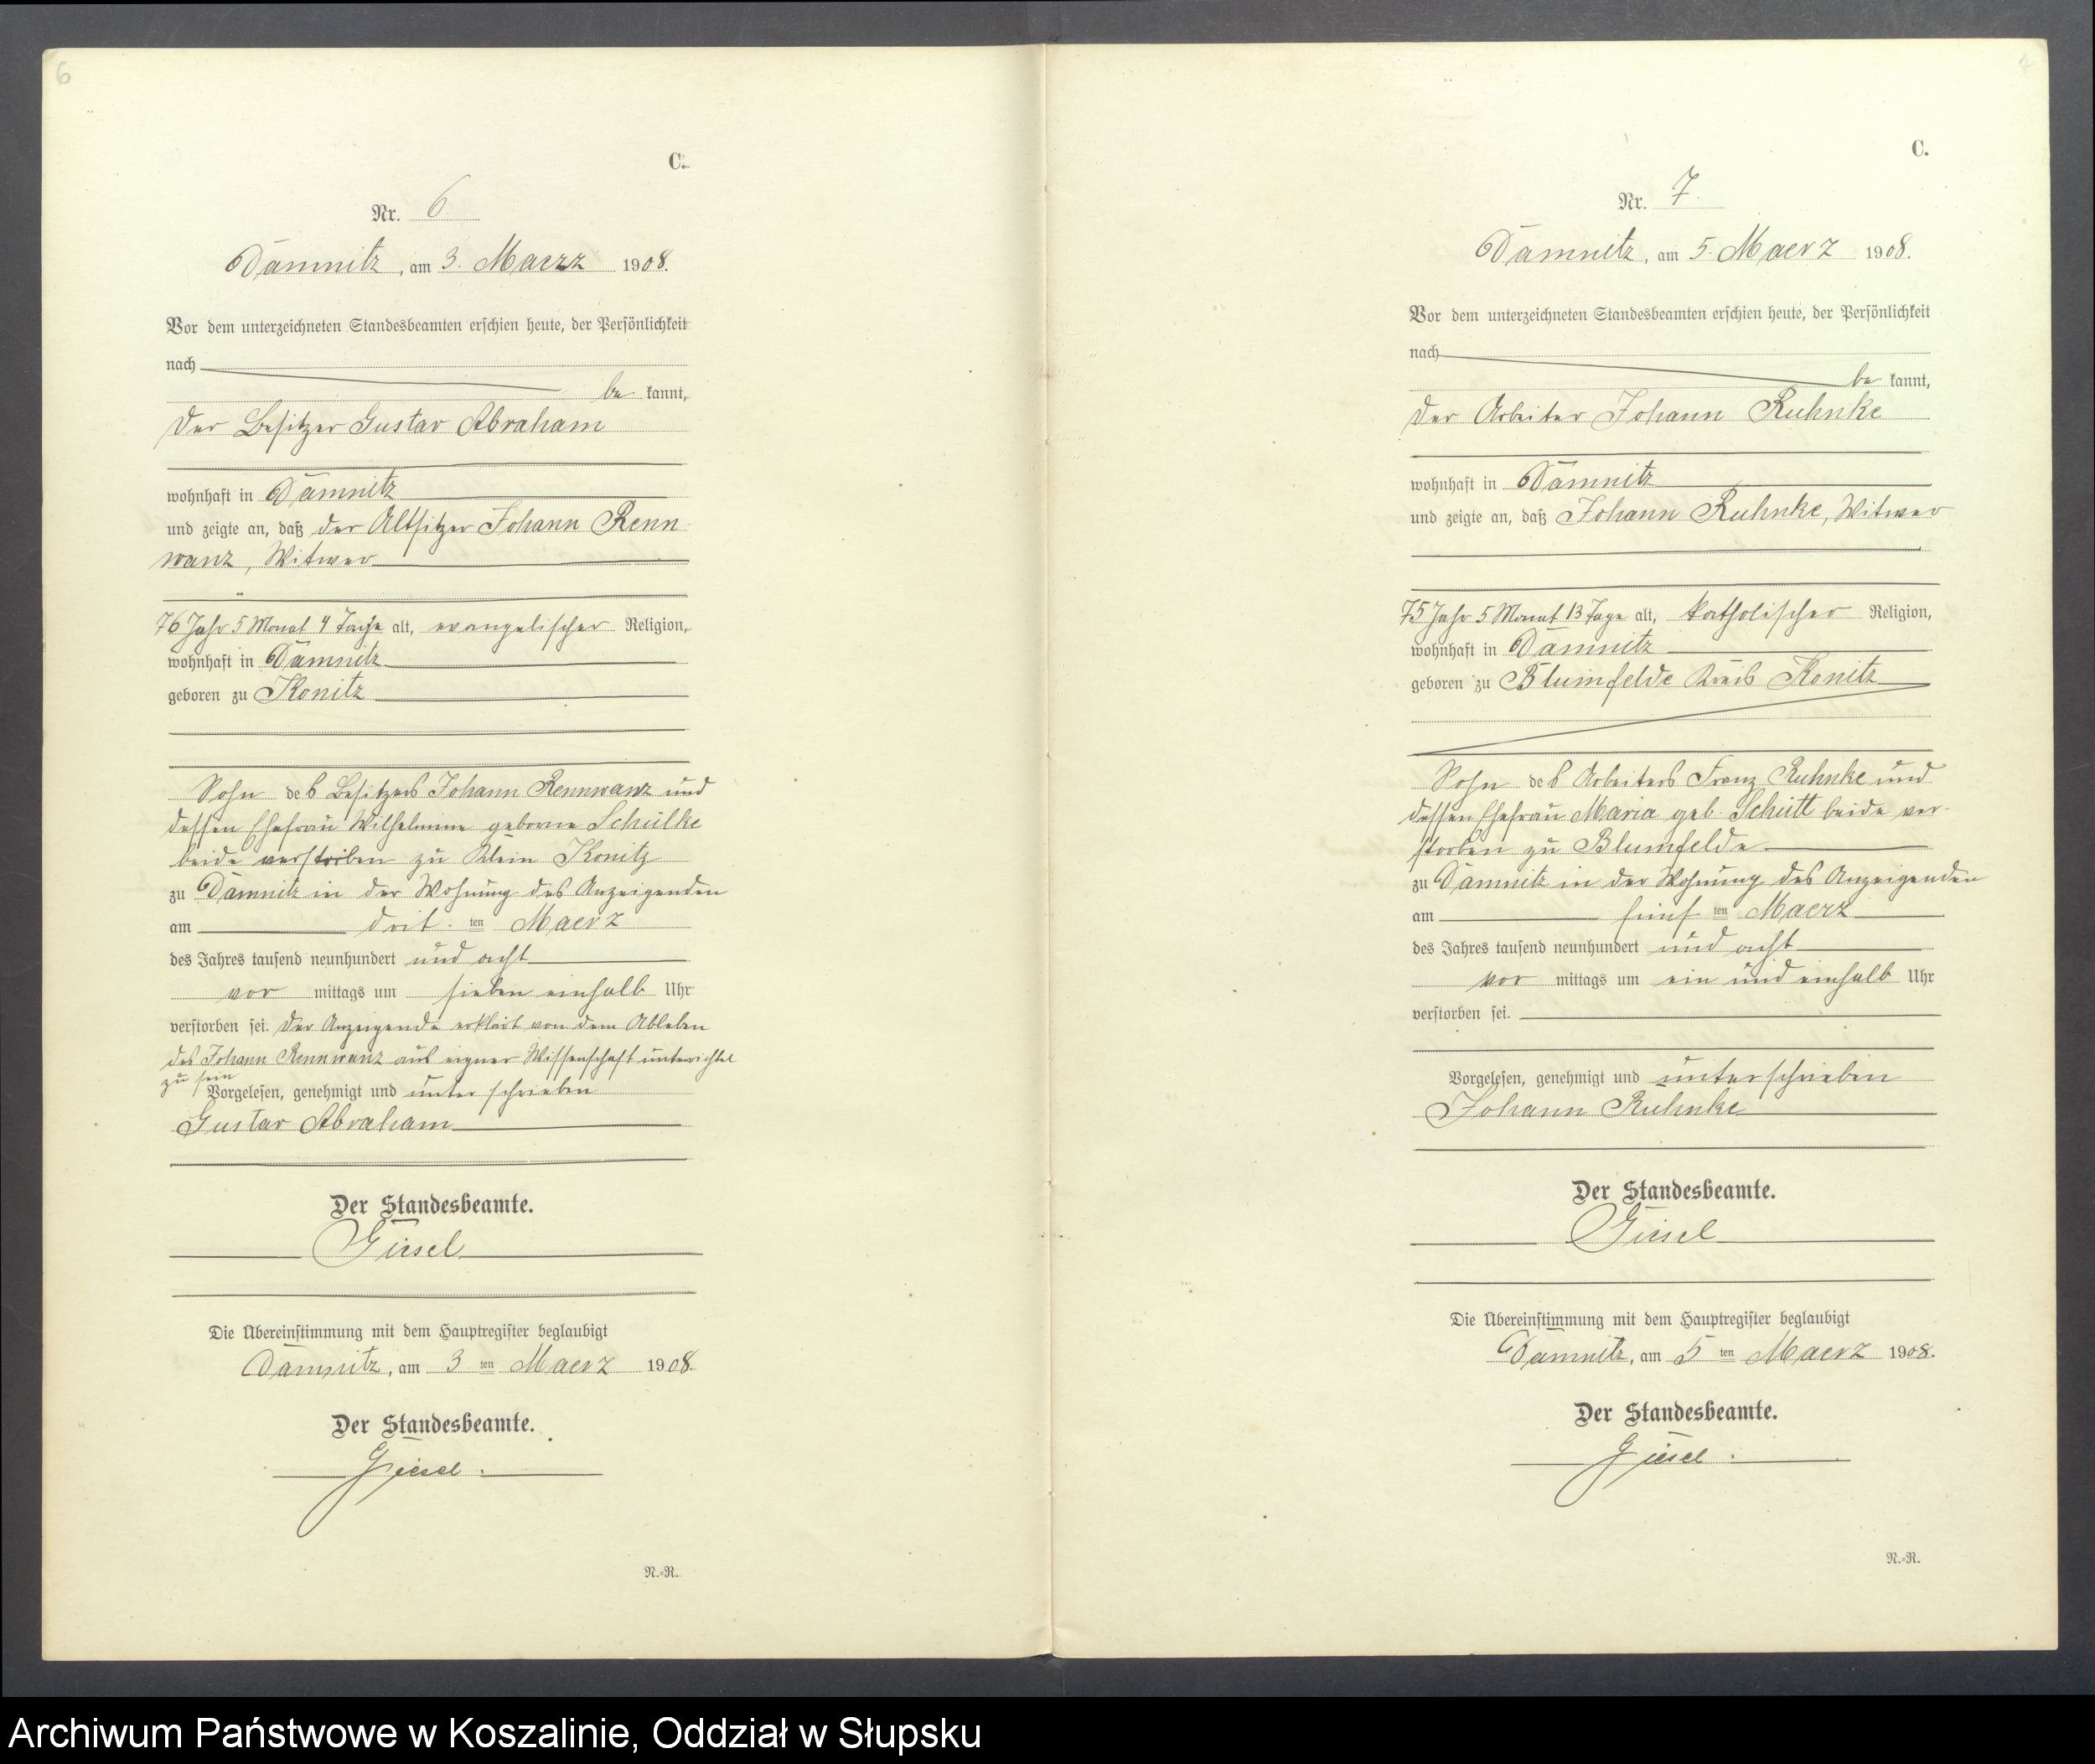 6
C.
Nr. 6
Damnitz, am 3. Maerz 1908.
Vor dem unterzeichneten Standesbeamten erschien heute, der Persönlichkeit
nach
be kannt,
der Besitzer Gustav Abraham
wohnhaft in Damnitz
und zeigte an, daß der Altsitzer Johann Renn
wanz, Witwer
76 Jahr 5 Monat 4 Tage alt, evangelischer Religion,
wohnhaft in Damnitz
geboren zu Konitz
Sohn des Besitzers Johann Rennwanz und
dessen Ehefrau Wilhelmine geborne Schülke
beide verstorben zu Klein Konitz
zu Damnitz in der Wohnung des Anzeigenden
am drit. ten Maerz
des Jahres tausend neunhundert und acht
vor mittags um sieben einhalb Uhr
verstorben sei. Der Anzeigende erklärt von dem Ableben
des Johann Rennwanz aus eigner Wissenschaft unterichtet
zu sein
Vorgelesen, genehmigt und unter schrieben
Gustav Abraham
Der Standesbeamte.
Giesel
Die Übereinstimmung mit dem Hauptregister beglaubigt
Damnitz, am 3 ten Maerz 1908.
Der Standesbeamte.
Giesel.
N.-R.
C.
Nr. 7.
Damnitz, am 5. Maerz 1908.
Vor dem unterzeichneten Standesbeamten erschien heute, der Persönlichkeit
nach
be kannt,
der Arbeiter Johann Ruhnke
wohnhaft in Damnitz
und zeigte an, daß Johann Ruhnke, Witwer
75 Jahr 5 Monat 13 Tage alt, katholischer Religion,
wohnhaft in Damnitz
geboren zu Blumfelde Kreis Konitz
Sohn des Arbeiters Franz Ruhnke und
dessen Ehefrau Maria geb. Schütt beide ver-
storben zu Blumfelde
zu Damnitz in der Wohnung des Anzeigenden
am fünf ten Maerz
des Jahres tausend neunhundert und acht
vor mittags um ein und einhalb Uhr
verstorben sei.
Vorgelesen, genehmigt und unterschrieben
Johann Ruhnke
Der Standesbeamte.
Giesel
Die Übereinstimmung mit dem Hauptregister beglaubigt
Damnitz, am 5 ten Maerz 1908.
Der Standesbeamte.
Giesel.
N.-R.
Archiwum Państwowe w Koszalinie, Oddział w Słupsku